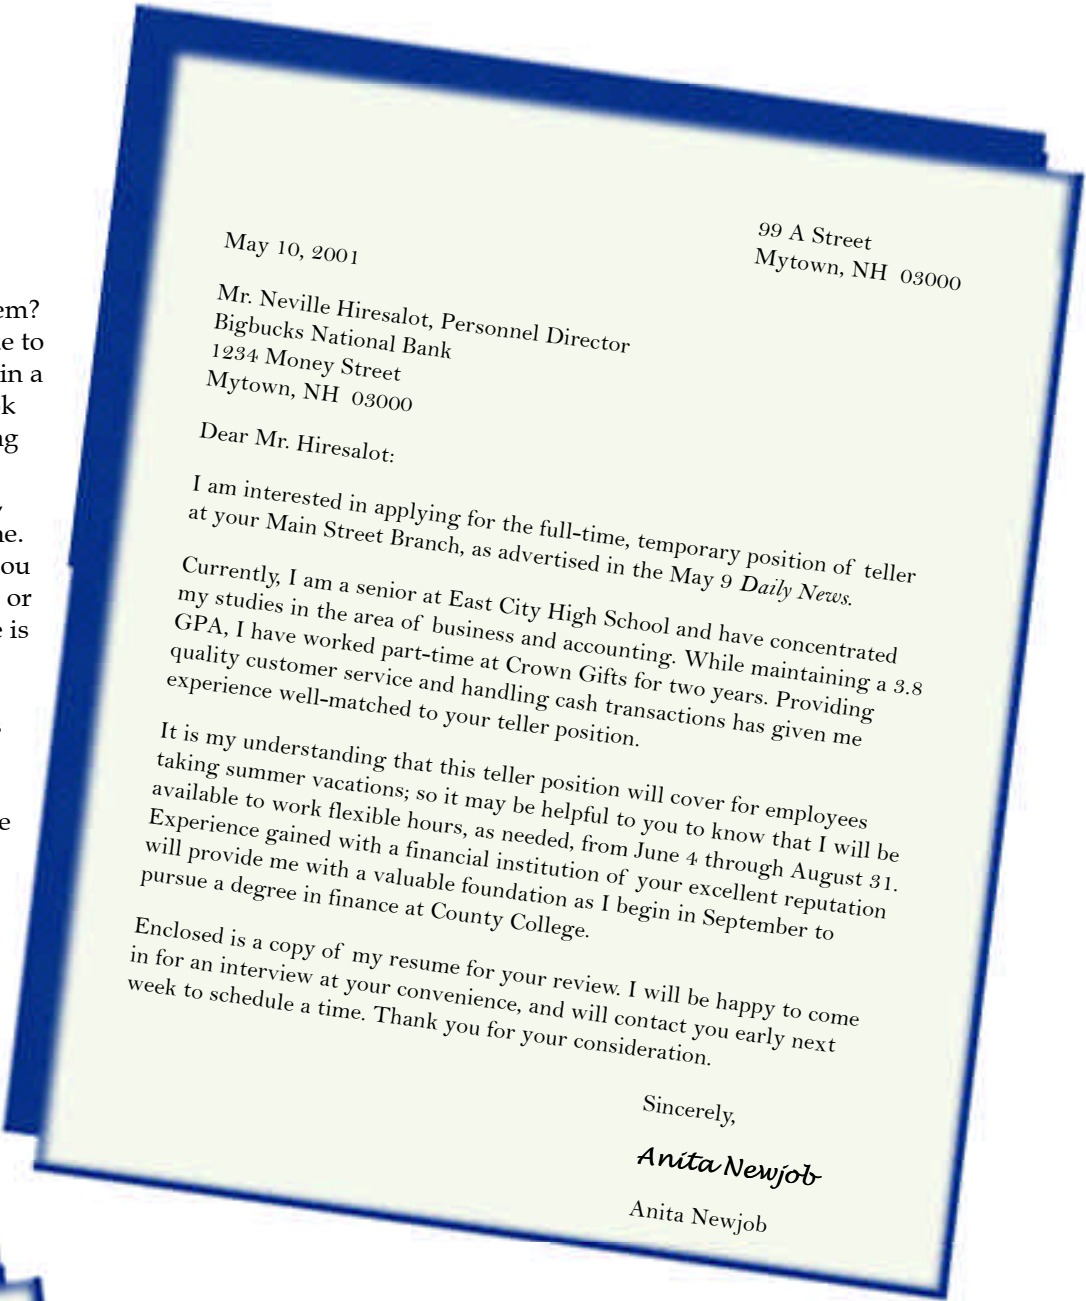 em?
e to
in a
k
ng
,
ne.
ou
or
e is
s
e
99 A Street
Mytown, NH 03000
May 10, 2001
Mr. Neville Hiresalot, Personnel Director
Bigbucks National Bank
1234 Money Street
Mytown, NH 03000
Dear Mr. Hiresalot:
I am interested in applying for the full-time, temporary position of teller
at your Main Street Branch, as advertised in the May 9 Daily News.
Currently, I am a senior at East City High School and have concentrated
my studies in the area of business and accounting. While maintaining a 3.8
GPA, I have worked part-time at Crown Gifts for two years. Providing
quality customer service and handling cash transactions has given me
experience well-matched to your teller position.
It is my understanding that this teller position will cover for employees
taking summer vacations; so it may be helpful to you to know that I will be
available to work flexible hours, as needed, from June 4 through August 31.
Experience gained with a financial institution of your excellent reputation
will provide me with a valuable foundation as I begin in September to
pursue a degree in finance at County College.
Enclosed is a copy of my resume for your review. I will be happy to come
in for an interview at your convenience, and will contact you early next
week to schedule a time. Thank you for your consideration.
Sincerely,
Anita Newjob
Anita Newjob